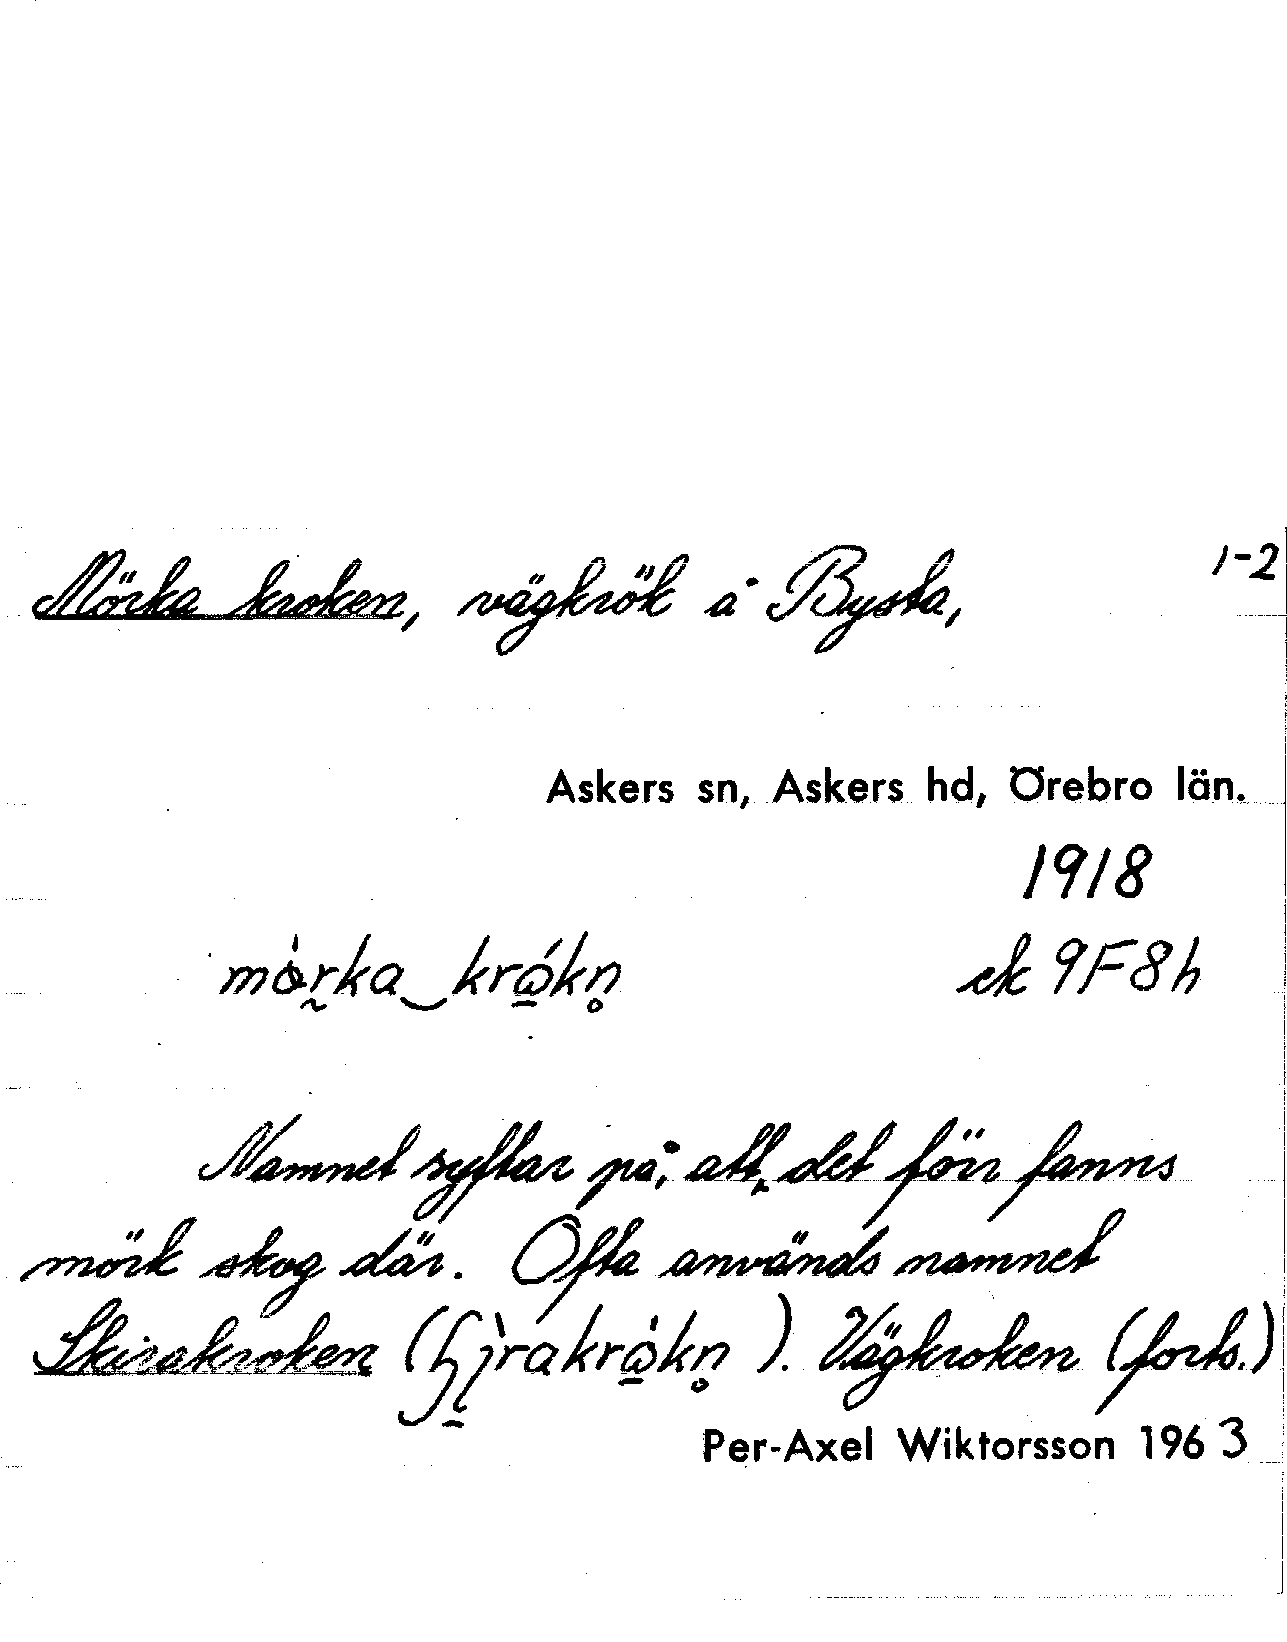 Mörka kroken, vägkrök å Bysta, 1-2
Askers sn, Askers hd, Örebro län.
1918
ek 9F8h
Namnet syftar på, att det förr fanns
mörk skog där. Ofta används namnet
Skirakroken ( ). Vägkroken (forts.)
Per-Axel Wiktorsson 1963